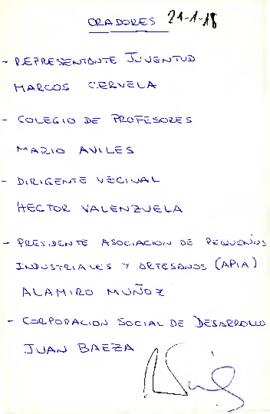 ORADORES 21-1-18
- REPRESENTANTE JUVENTUD
MARCOS CERVELA
- COLEGIO DE PROFESORES
MARIO AVILES
- DIRIGENTE VECINAL
HECTOR VALENZUELA
- PRESIDENTE ASOCIACION DE PEQUEÑOS
INDUSTRIALES Y ARTESANOS (APIA)
ALAMIRO MUÑOZ
- CORPORACION SOCIAL DE DESARROLLO
JUAN BAEZA